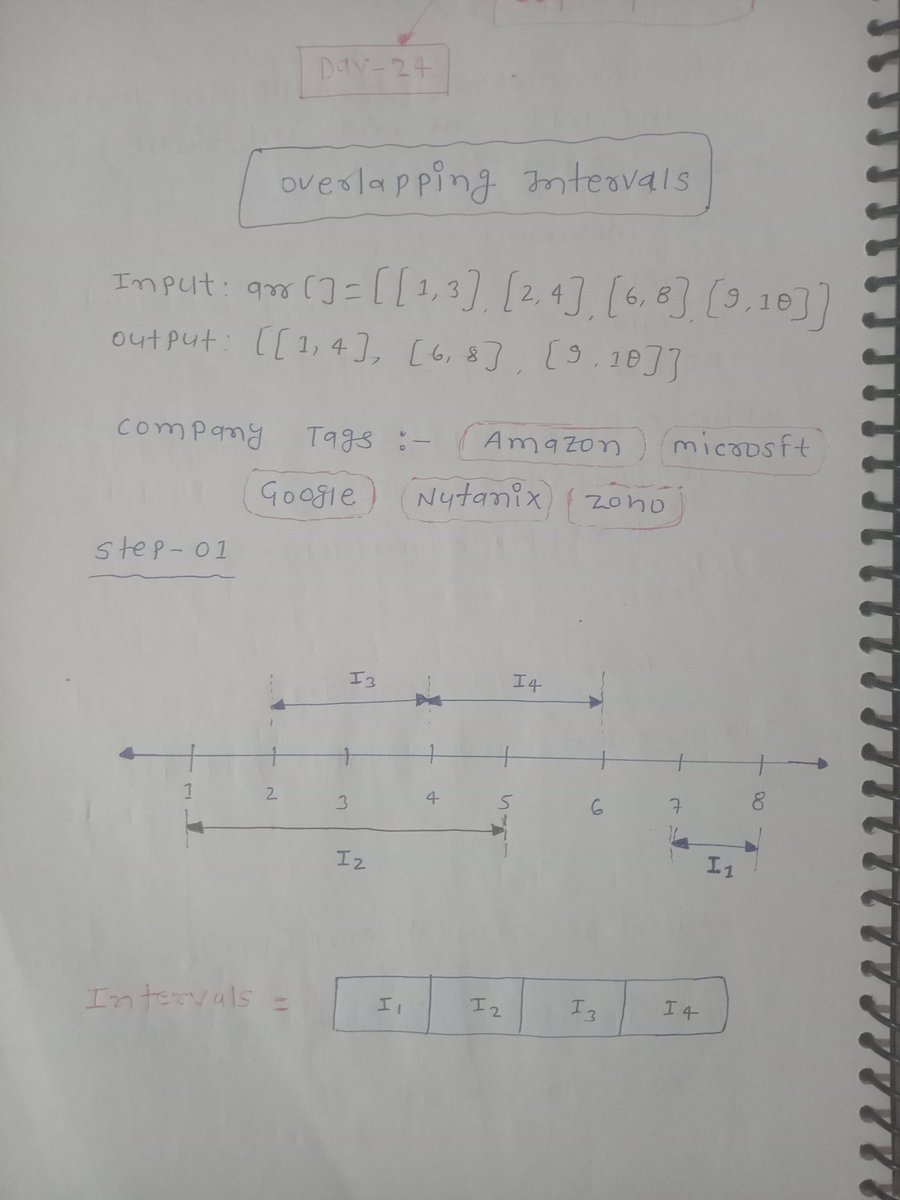 Day-24
overlapping Intervals
Input: arr[]=[[1,3],[2,4],[6,8],[9,10]]
output: [[1,4],[6,8],[9,10]]
company Tags :- Amazon microsft
Google Nutanix zoho
step-01
I3 I4
1 2 3 4 5 6 7 8
I2 I1
Intervals = I1 I2 I3 I4